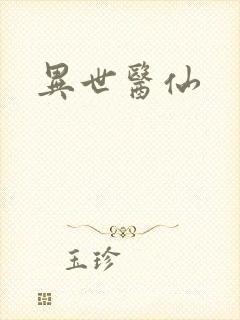 異世醫仙
玉珍